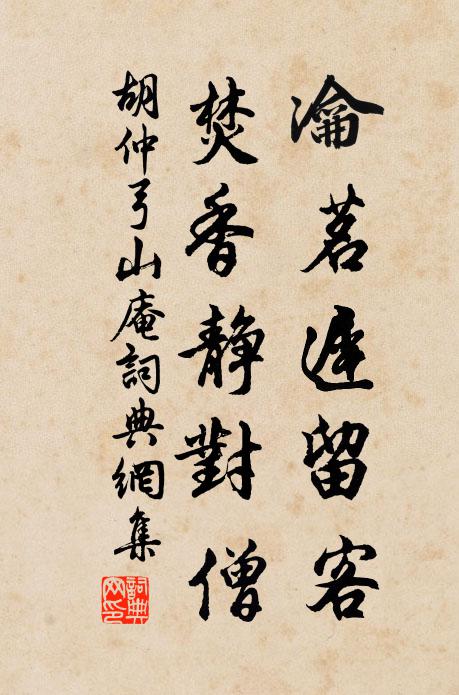 瀹茗遲留客
焚香靜對僧
胡仲弓山庵詞典網集
詞典网印